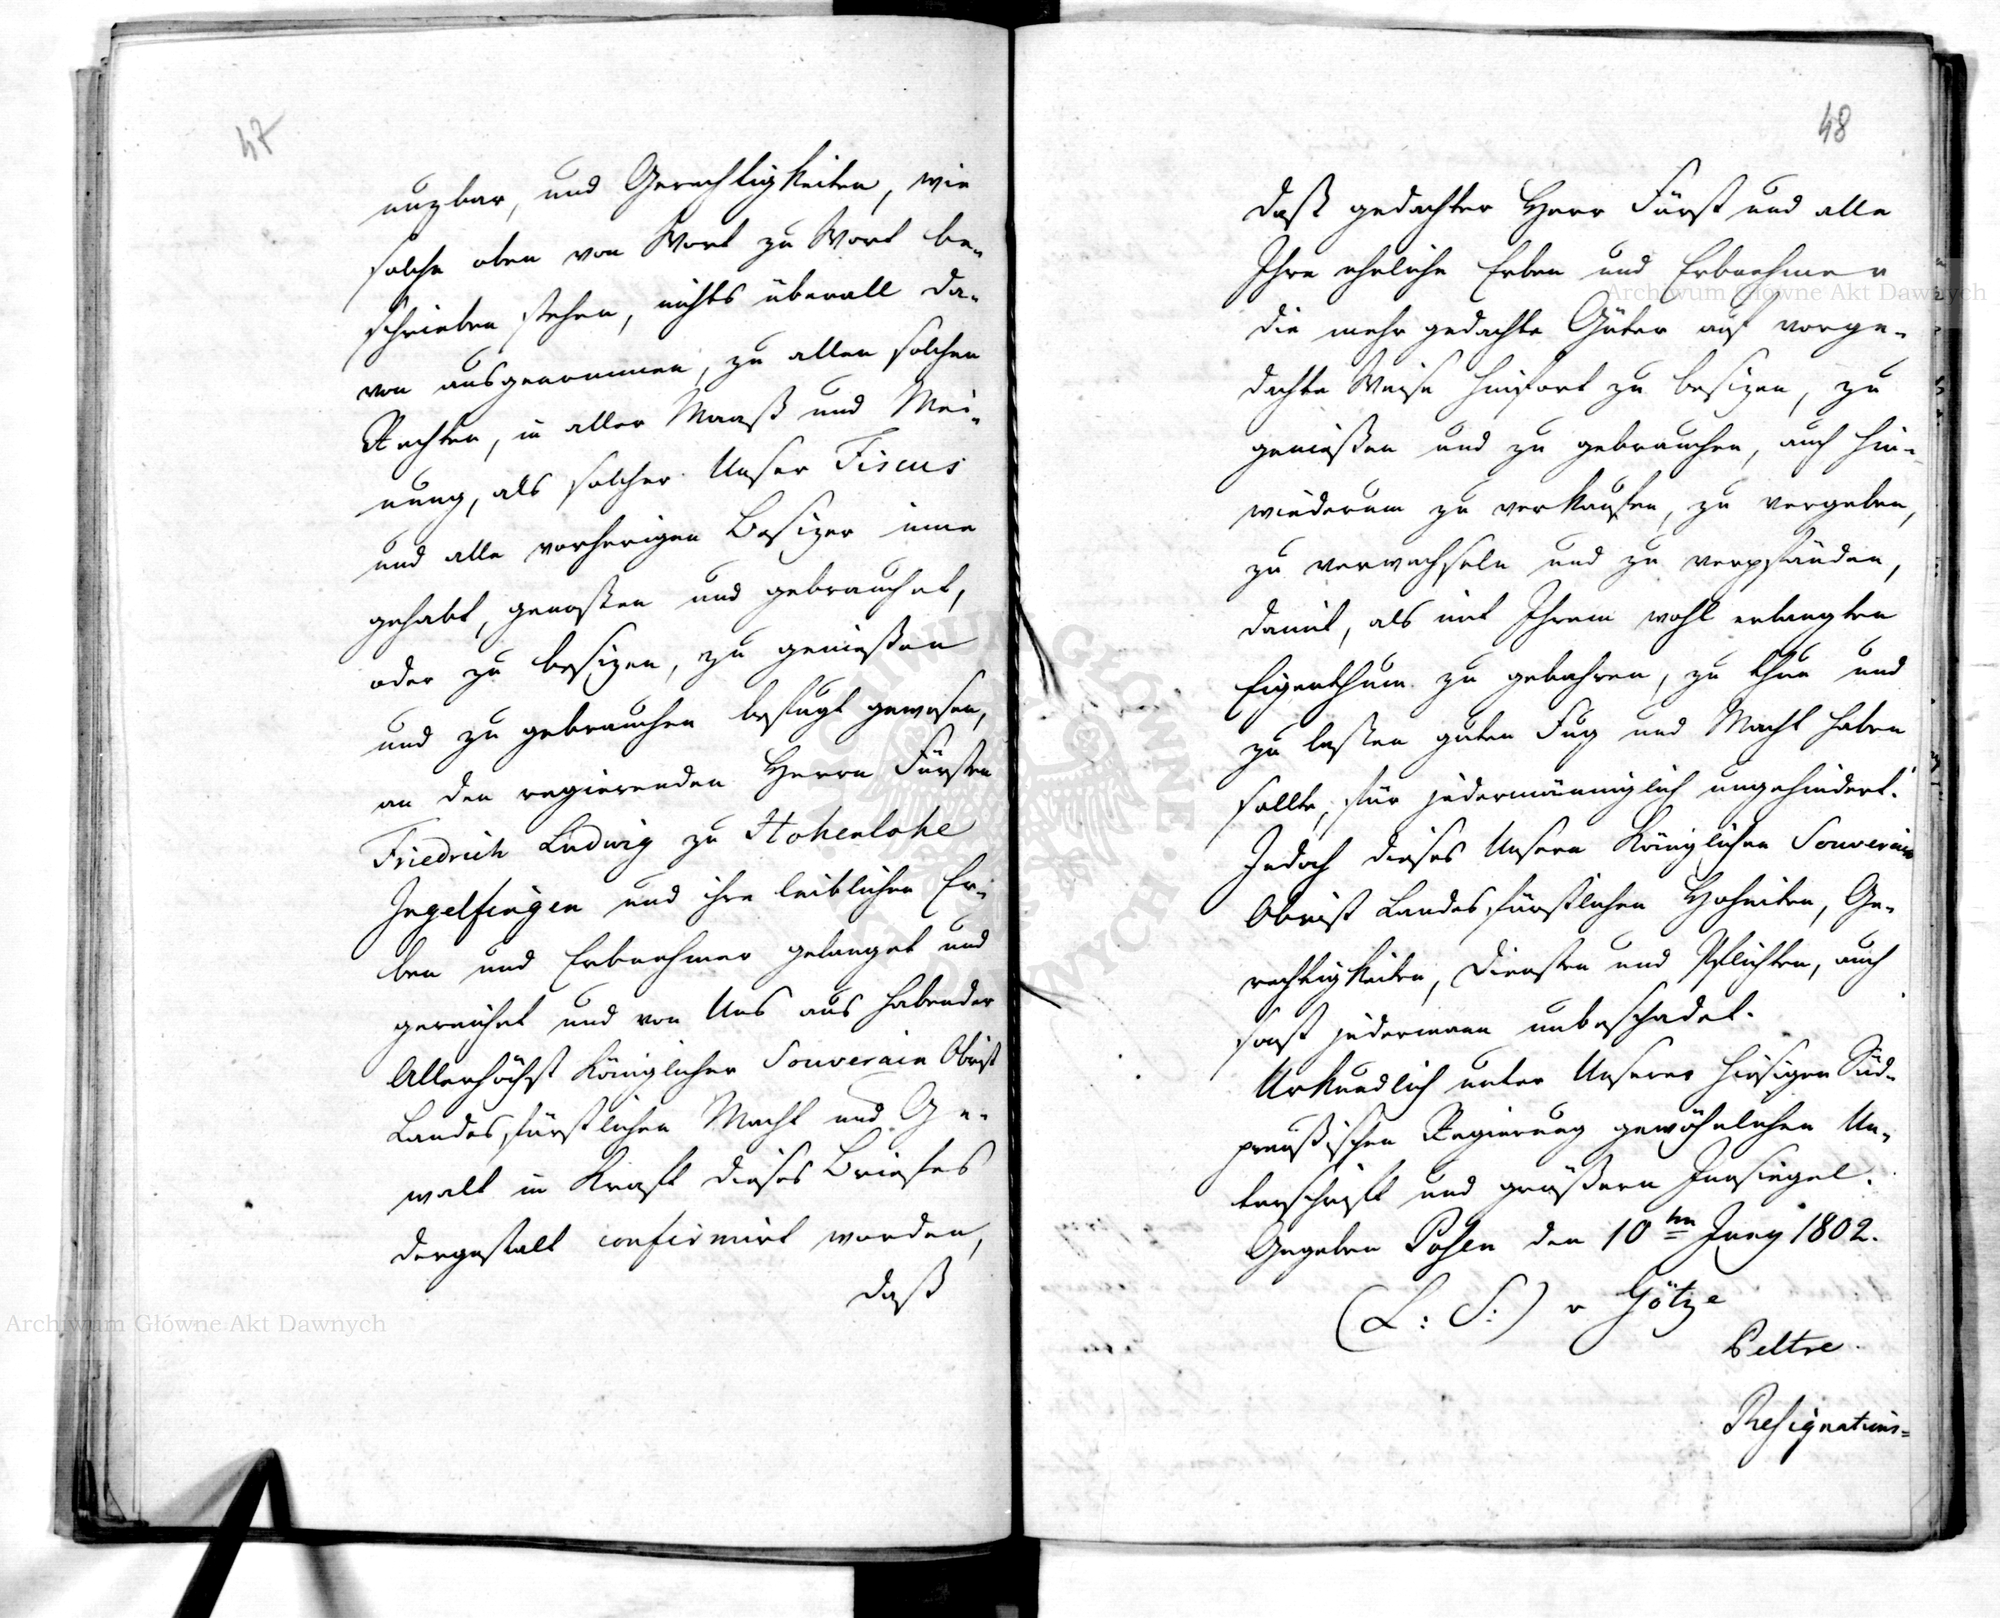 47
nuzbar, und Gerechtigkeiten, wie
solche oben von Wort zu Wort be-
schrieben stehen, nichts überall da-
von ausgenommen, zu allen solchen
Rechten, in aller Maaß und Mei-
nung, als solcher Unser Fiscus
und alle vorherigen Besizer inne
gehabt, genoßen und gebrauchet,
oder zu besizen, zu genießen
und zu gebrauchen befugt gewesen,
an den regierenden Herrn Fürsten
Friedrich Ludwig zu Hohenlohe
Ingelfingen und ihre leiblichen Er-
ben und Erbnehmer gelanget und
gereichet und von Uns aus habender
Allerhöchst Königlicher Souverain Obrist
Landesfürstlichen Macht und Ge-
walt in Kraft dieses Briefes
dergestalt confirmirt worden,
daß
48
daß gedachter Herr Fürst und alle
Ihre eheliche Erben und Erbnehmer
die mehr gedachte Güter auf vorge-
dachte Weise hinfort zu besizen, zu
genießen und zu gebrauchen, auch hin-
wiederum zu verkaufen, zu vergeben,
zu verwechseln und zu verpfänden,
damit, als mit Ihrem wohl erlangten
Eigenthum zu gebahren, zu thun und
zu laßen guten Fug und Macht haben
sollte, für jedermänniglich ungehindert.
Jedoch dieses Unsern Königlichen Souverain
Obrist Landesfürstlichen Hoheiten, Ge-
rechtigkeiten, Diensten und Pflichten, auch
sonst jedermann unbeschadet.
Urkundlich unter Unserer hiesigen Süd-
preußischen Regierung gewöhnlichen Un-
terschrift und größern Innsiegel.
Gegeben Posen den 10ten Juny 1802.
(L: S:) v Götze
Peltre
Resignations-
Archiwum Główne Akt Dawnych
Archiwum Główne Akt Dawnych
ARCHIWUM GŁÓWNE AKT DAWNYCH